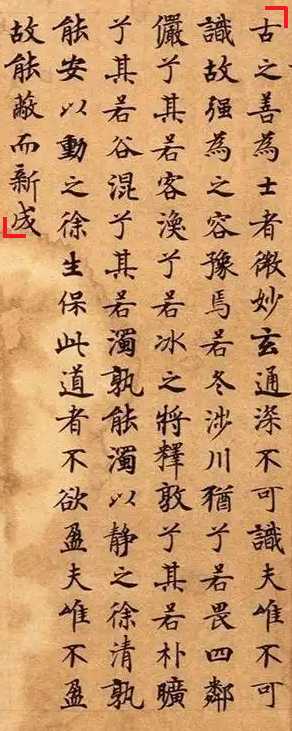 古之善為士者微妙玄通深不可識夫唯不可
識故强為之容豫焉若冬涉川猶兮若畏四鄰
儼兮其若客渙兮若冰之將釋敦兮其若朴曠
兮其若谷混兮其若濁孰能濁以静之徐清孰
能安以動之徐生保此道者不欲盈夫唯不盈
故能蔽而新成